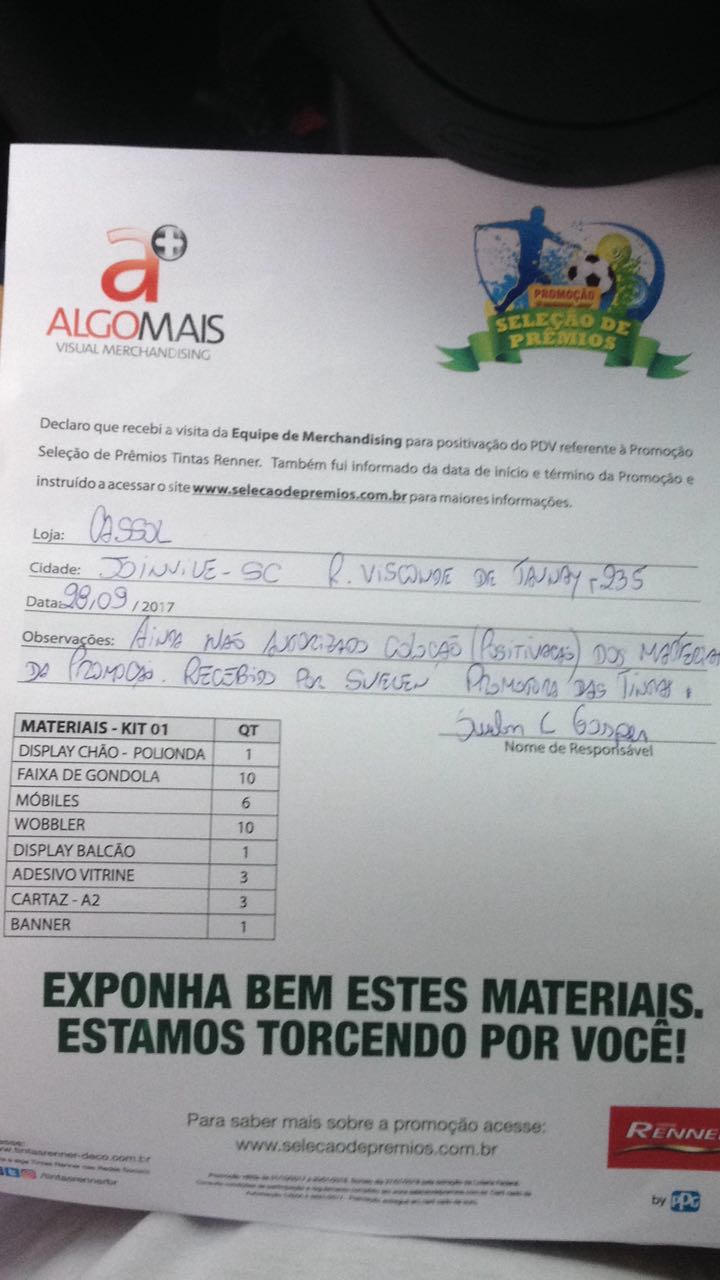 a+
ALGOMAIS
VISUAL MERCHANDISING
PROMOÇÃO
SELEÇÃO DE
PRÊMIOS
Declaro que recebi a visita da Equipe de Merchandising para positivação do PDV referente à Promoção
Seleção de Prêmios Tintas Renner. Também fui informado da data de início e término da Promoção e
instruído a acessar o site www.selecaodepremios.com.br para maiores informações.
Loja: CASSOL
Cidade: JOINVILE - SC R. VISCONDE DE TAUNAY - 235
Data: 28,09 / 2017
Observações: AINDA NÃO AUTORIZADO COLOCÃO (POSITIVAÇÃO) DOS MATERIAI
DA PROMOÇÃO. RECEBIDO POR SUELEN PROMOTORA DAS TINTAS.
Suelen C Gasper
Nome de Responsável
MATERIAIS - KIT 01 QT
DISPLAY CHÃO - POLIONDA 1
FAIXA DE GONDOLA 10
MÓBILES 6
WOBBLER 10
DISPLAY BALCÃO 1
ADESIVO VITRINE 3
CARTAZ - A2 3
BANNER 1
EXPONHA BEM ESTES MATERIAIS.
ESTAMOS TORCENDO POR VOCÊ!
Para saber mais sobre a promoção acesse:
www.selecaodepremios.com.br
w.tintasrenner-deco.com.br
/tintasrennerbr
RENNE
by PPG